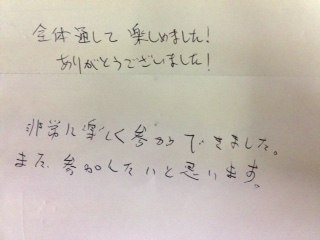 全体通して楽しめました!
ありがとうございました!
非常に楽しく参加できました。
また参加したいと思います。